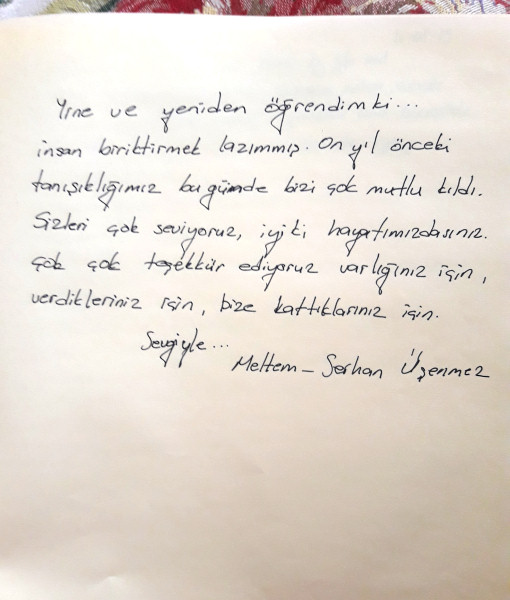 Yine ve yeniden öğrendimki...
insan biriktirmek lazımmış. On yıl önceki
tanışıklığımız bugünde bizi çok mutlu kıldı.
Sizleri çok seviyoruz, iyiki hayatımızdasınız.
Çok çok teşekkür ediyoruz varlığınız için,
verdikleriniz için, bize kattıklarınız için.
Sevgiyle...
Meltem - Serhan Üşenmez